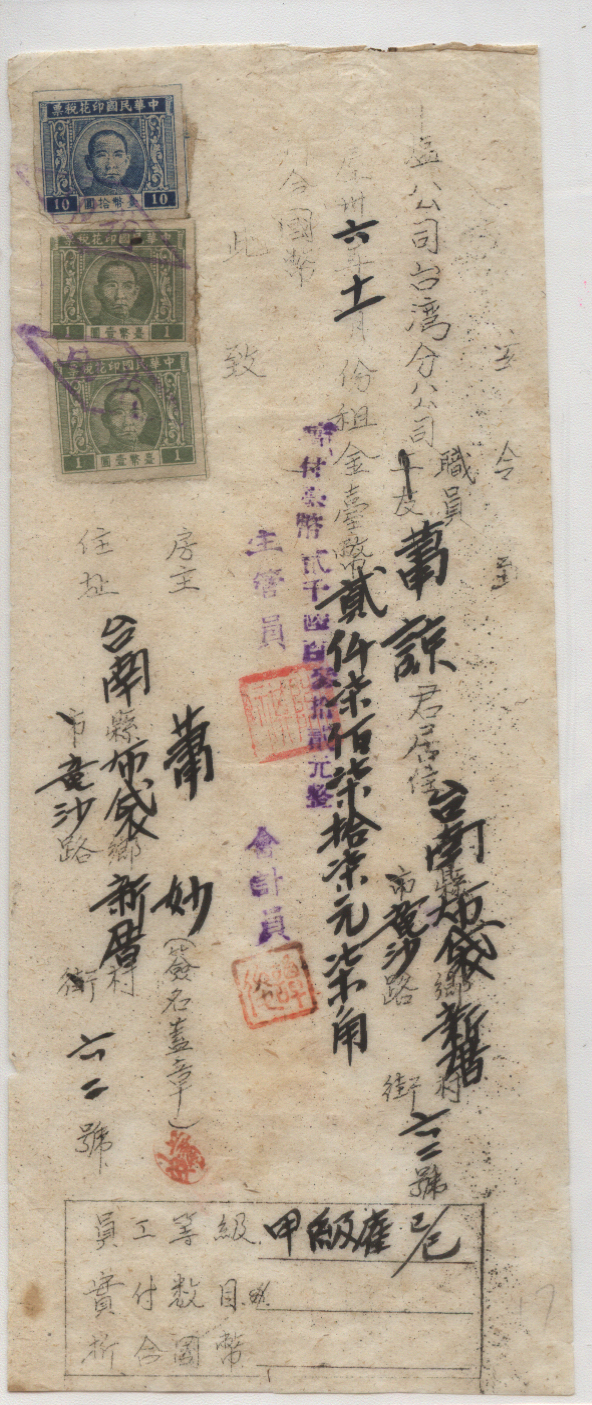 今收到
鹽公司台湾分公司職員工友蕭諒君居住台南縣市布袋鄉竜沙路新厝村街六二號
卅六年十一月份租金臺幣貳仟柒佰柒拾柒元柒角
折合國幣
實付台幣貳千四百零拾貳元整
此致
主管員
會計員
房主 蕭妙（簽名蓋章）
住址 台南縣市布袋鄉竜沙路新厝村街六二號
員工等級 甲級雇
實付数目
折合國幣
中華民國印花稅票
10 臺幣拾圓 10
1 臺幣壹圓 1
中華民國印花稅票
1 臺幣壹圓 1